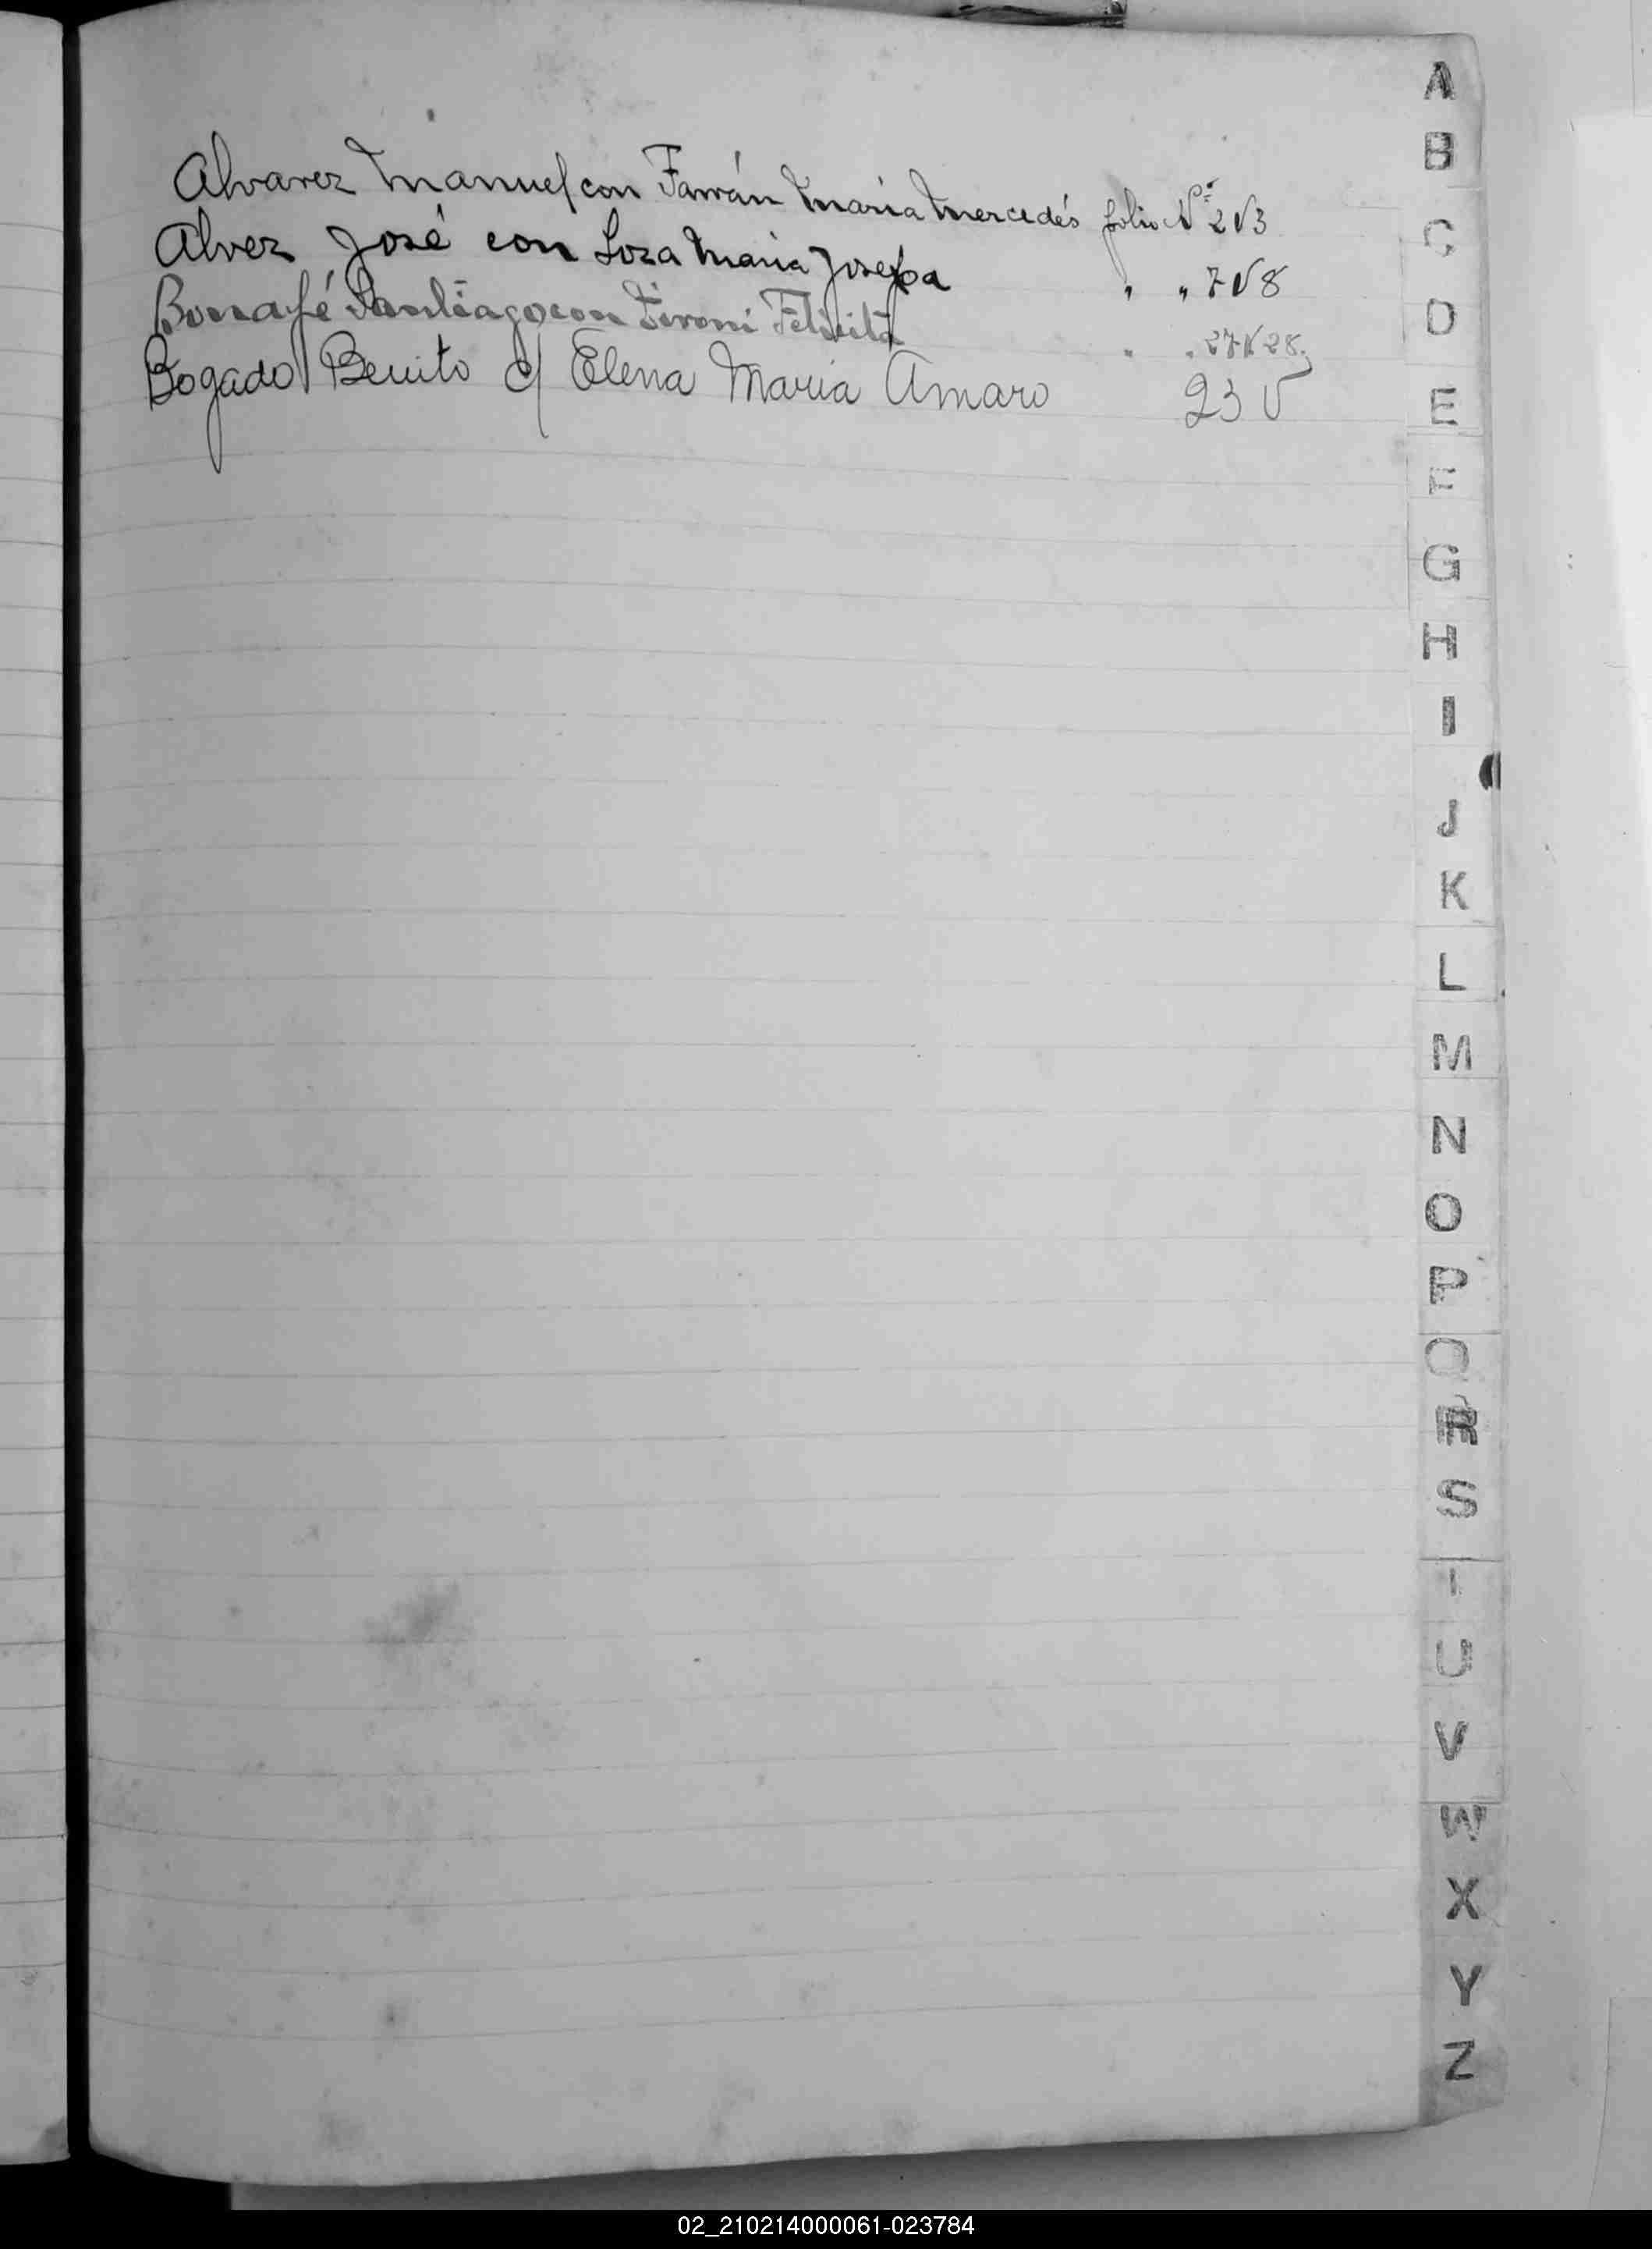 Alvarez Manuel con Farrán Maria Mercedés folio Nº 2 V 3
Alvez José con Loza Maria Josefa " " 7 V 8
Bonafé Santiago con Zironi Felicita " " 27 V 28
Bogado Benito c/ Elena Maria Amaro 23 V
A
B
C
D
E
F
G
H
I
J
K
L
M
N
O
P
Q
R
S
T
U
V
W
X
Y
Z
02_210214000061-023784